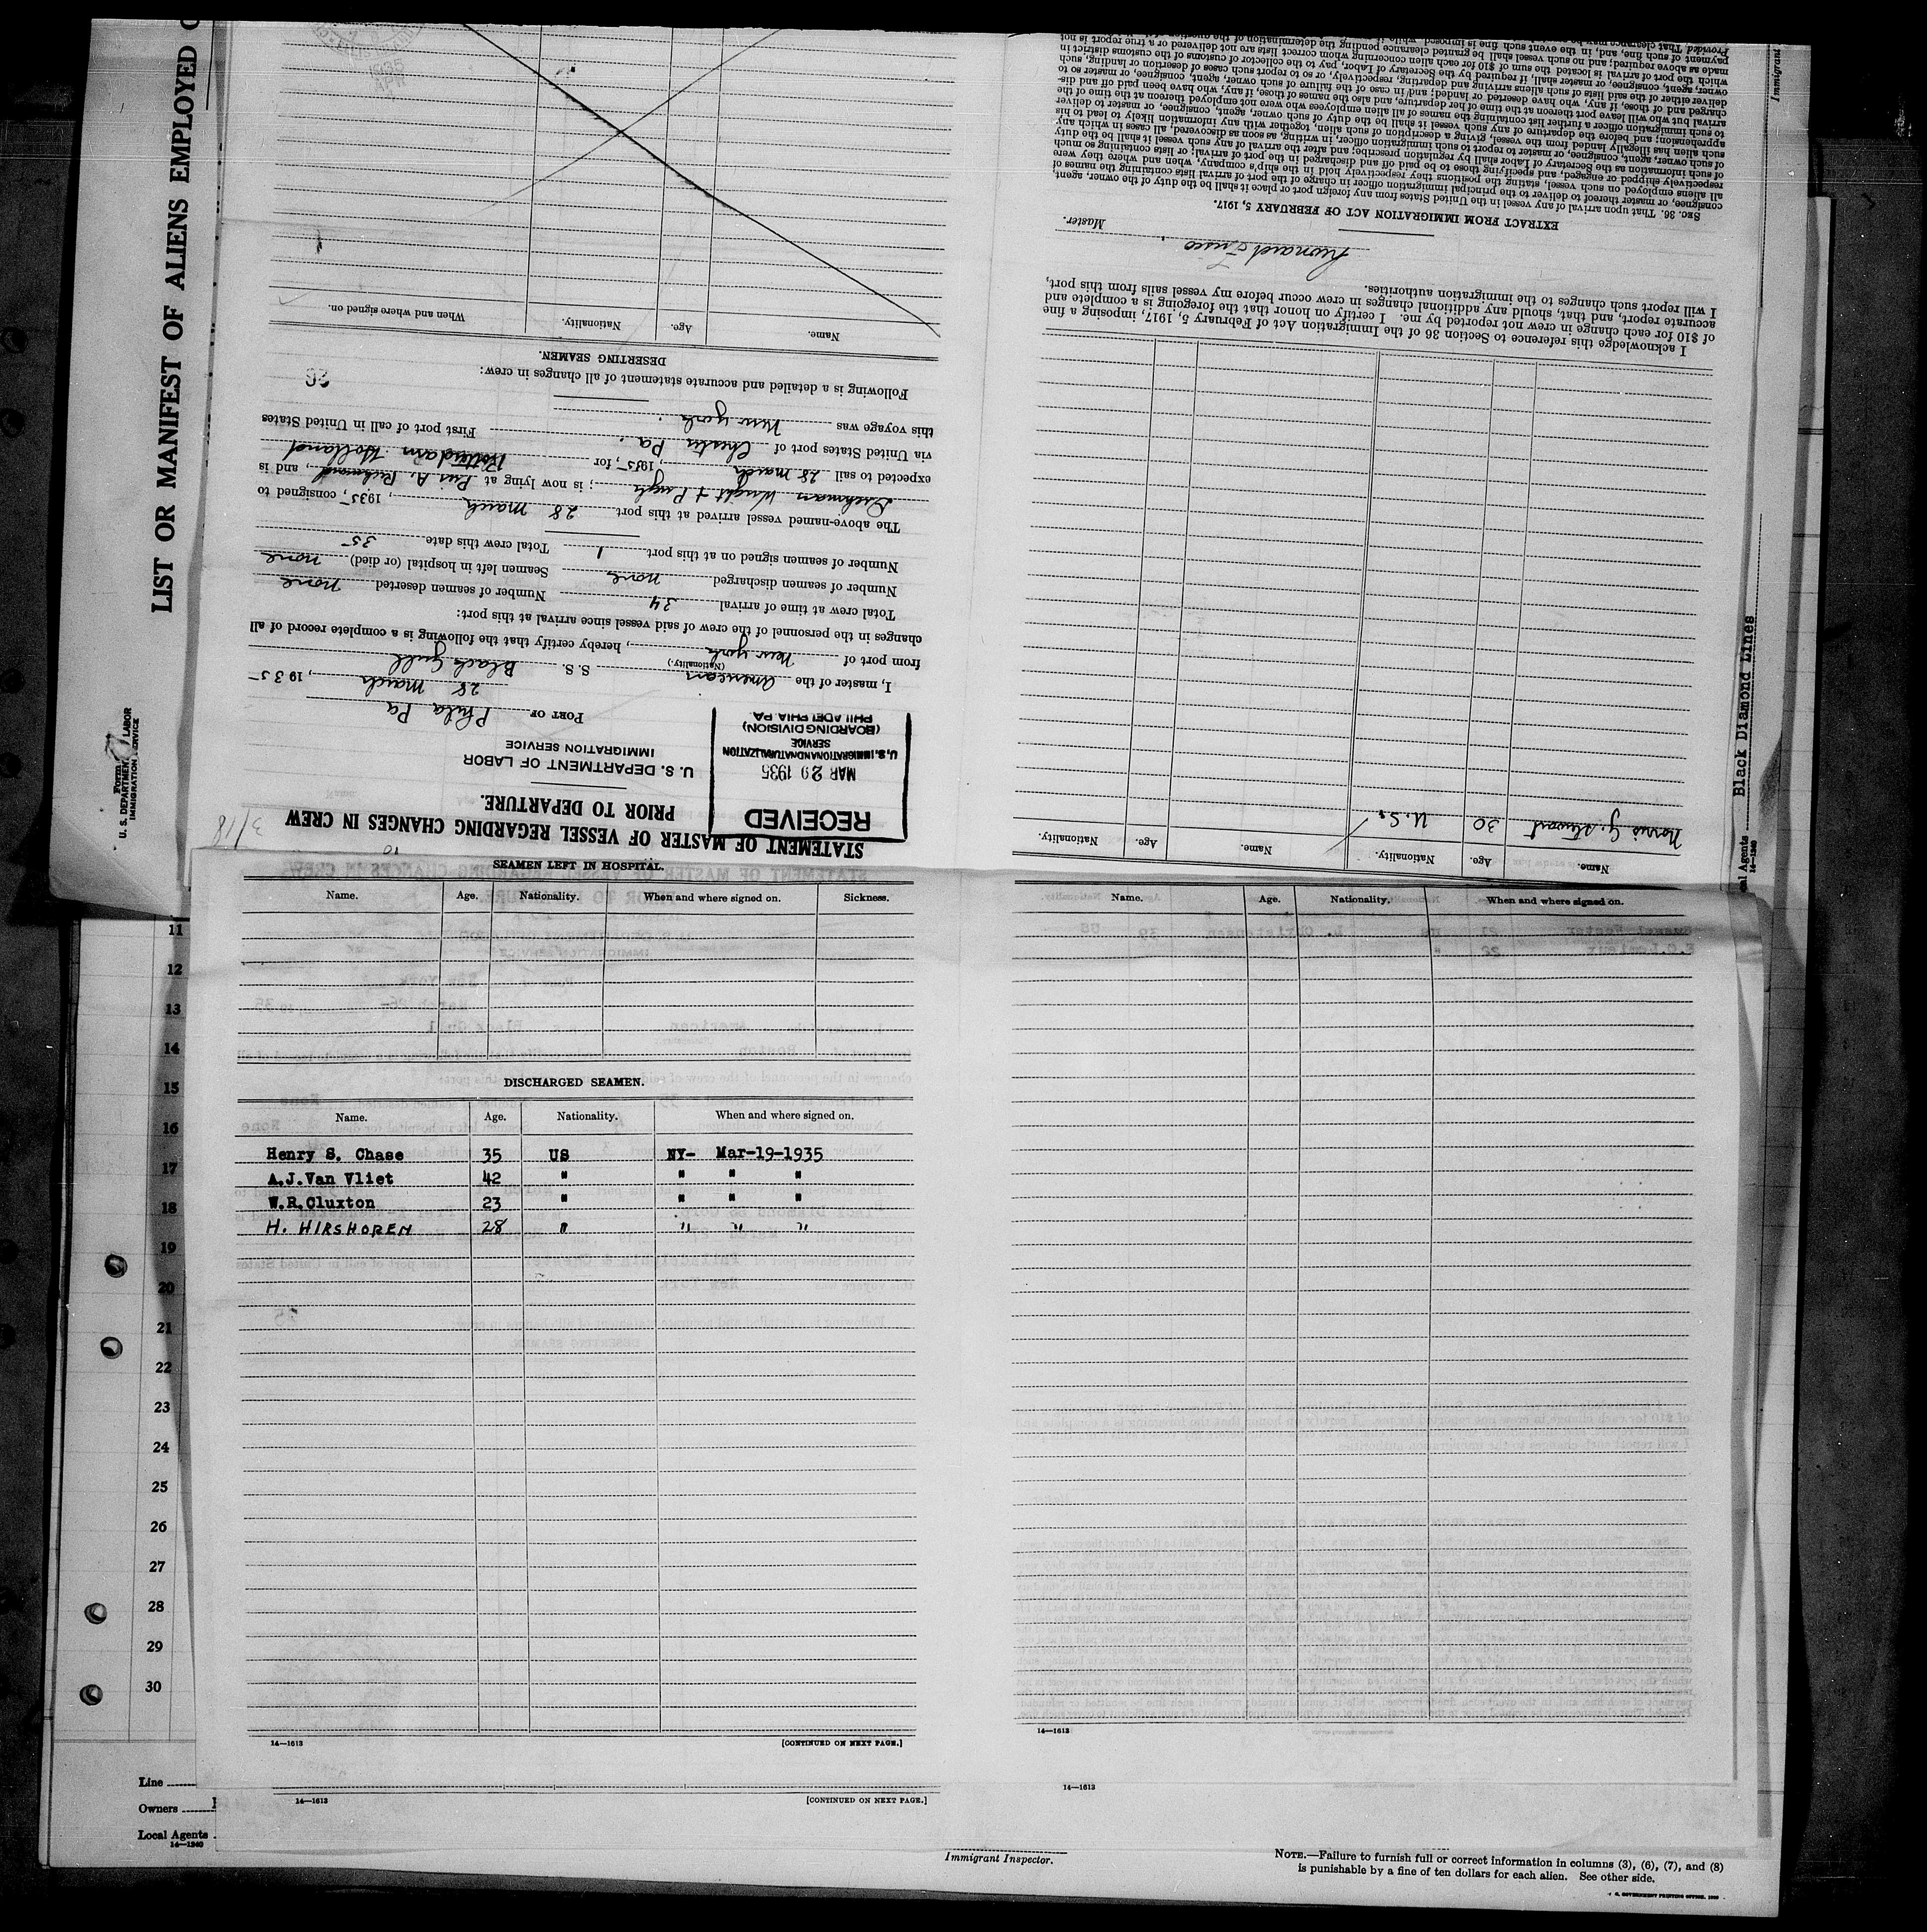 LIST OR MANIFEST OF ALIENS EMPLOYED
Form
U. S. DEPARTMENT LABOR
IMMIGRATION SERVICE
STATEMENT OF MASTER OF VESSEL REGARDING CHANGES IN CREW
PRIOR TO DEPARTURE.
3/18
U. S. DEPARTMENT OF LABOR
IMMIGRATION SERVICE
RECEIVED
MAR 29 1935
U.S. IMMIGRATION AND NATURALIZATION
SERVICE
(BOARDING DIVISION)
PHILADELPHIA PA
PORT OF Phila Pa
28 March, 1935
I, master of the American S. S. Black Gull
(Nationality.)
from port of New York, hereby certify that the following is a complete record of all
changes in the personnel of the crew of said vessel since arrival at this port:
Total crew at time of arrival 34 Number of seamen deserted none
Number of seamen discharged none Seamen left in hospital (or died) none
Number of seamen signed on at this port 1 Total crew this date 35
The above-named vessel arrived at this port 28 March, 1935, consigned to
Wright & Pugh; is now lying at Pier A. Richmond, and is
expected to sail 28 March, 1935, for Rotterdam Holland
via United States port of Chester Pa. First port of call in United States
this voyage was New York.
Following is a detailed and accurate statement of all changes in crew:
DESERTING SEAMEN.
Name. Age. Nationality. When and where signed on.
Name. Age. Nationality. Name. Age. Nationality.
Morris G. Stewart 30 U.S.
I acknowledge this reference to Section 36 of the Immigration Act of February 5, 1917, imposing a fine
of $10 for each change in crew not reported by me. I certify on honor that the foregoing is a complete and
accurate report, and that, should any additional changes in crew occur before my vessel sails from this port,
I will report such changes to the immigration authorities.
Master.
EXTRACT FROM IMMIGRATION ACT OF FEBRUARY 5, 1917.
SEC. 36. That upon arrival of any vessel in the United States from any foreign port or place it shall be the duty of the owner, agent,
consignee, or master thereof to deliver to the principal immigration officer in charge of the port of arrival lists containing the names of
all aliens employed on such vessel, stating the positions they respectively hold in the ship's company, when and where they were
respectively shipped or engaged, and specifying those to be paid off and discharged in the port of arrival; or lists containing so much
of such information as the Secretary of Labor shall by regulation prescribe; and after the arrival of any such vessel it shall be the duty
of such owner, agent, consignee, or master to report to such immigration officer, in writing, as soon as discovered, all cases in which any
such alien has illegally landed from the vessel, giving a description of such alien, together with any information likely to lead to his
apprehension; and before the departure of any such vessel it shall be the duty of such owner, agent, consignee, or master to deliver
to such immigration officer a further list containing the names of all alien employees who were not employed thereon at the time of the
arrival but who will leave port thereon at the time of her departure, and also the names of those, if any, who have been paid off and dis-
charged and of those, if any, who have deserted or landed; and in case of the failure of such owner, agent, consignee, or master so to
deliver either of the said lists of such aliens arriving and departing, respectively, or so to report such cases of desertion or landing, such
owner, agent, consignee, or master shall, if required by the Secretary of Labor, pay to the collector of customs of the customs district in
which the port of arrival is located the sum of $10 for each alien concerning whom correct lists are not delivered or a true report is not
made as above required; and no such vessel shall be granted clearance pending the determination of the
payment of such fine, and, in the event such fine is imposed, while it
Black Diamond Lines
Agents
14—1240
Immigrant
SEAMEN LEFT IN HOSPITAL.
Name. Age. Nationality. When and where signed on. Sickness.
DISCHARGED SEAMEN.
Name. Age. Nationality. When and where signed on.
Henry S. Chase 35 US NY- Mar-19-1935
A.J.Van Vliet 42 " " " "
W.R.Cluxton 23 " " " "
H. HIRSHOREN 28 " " " "
14—1613 [CONTINUED ON NEXT PAGE.]
Name. Age. Nationality. When and where signed on.
14—1613
14—1613 [CONTINUED ON NEXT PAGE.]
14—1613
11
12
13
14
15
16
17
18
19
20
21
22
23
24
25
26
27
28
29
30
Line
Owners
Local Agents
14—1240
Immigrant Inspector.
NOTE.—Failure to furnish full or correct information in columns (3), (6), (7), and (8)
is punishable by a fine of ten dollars for each alien. See other side.